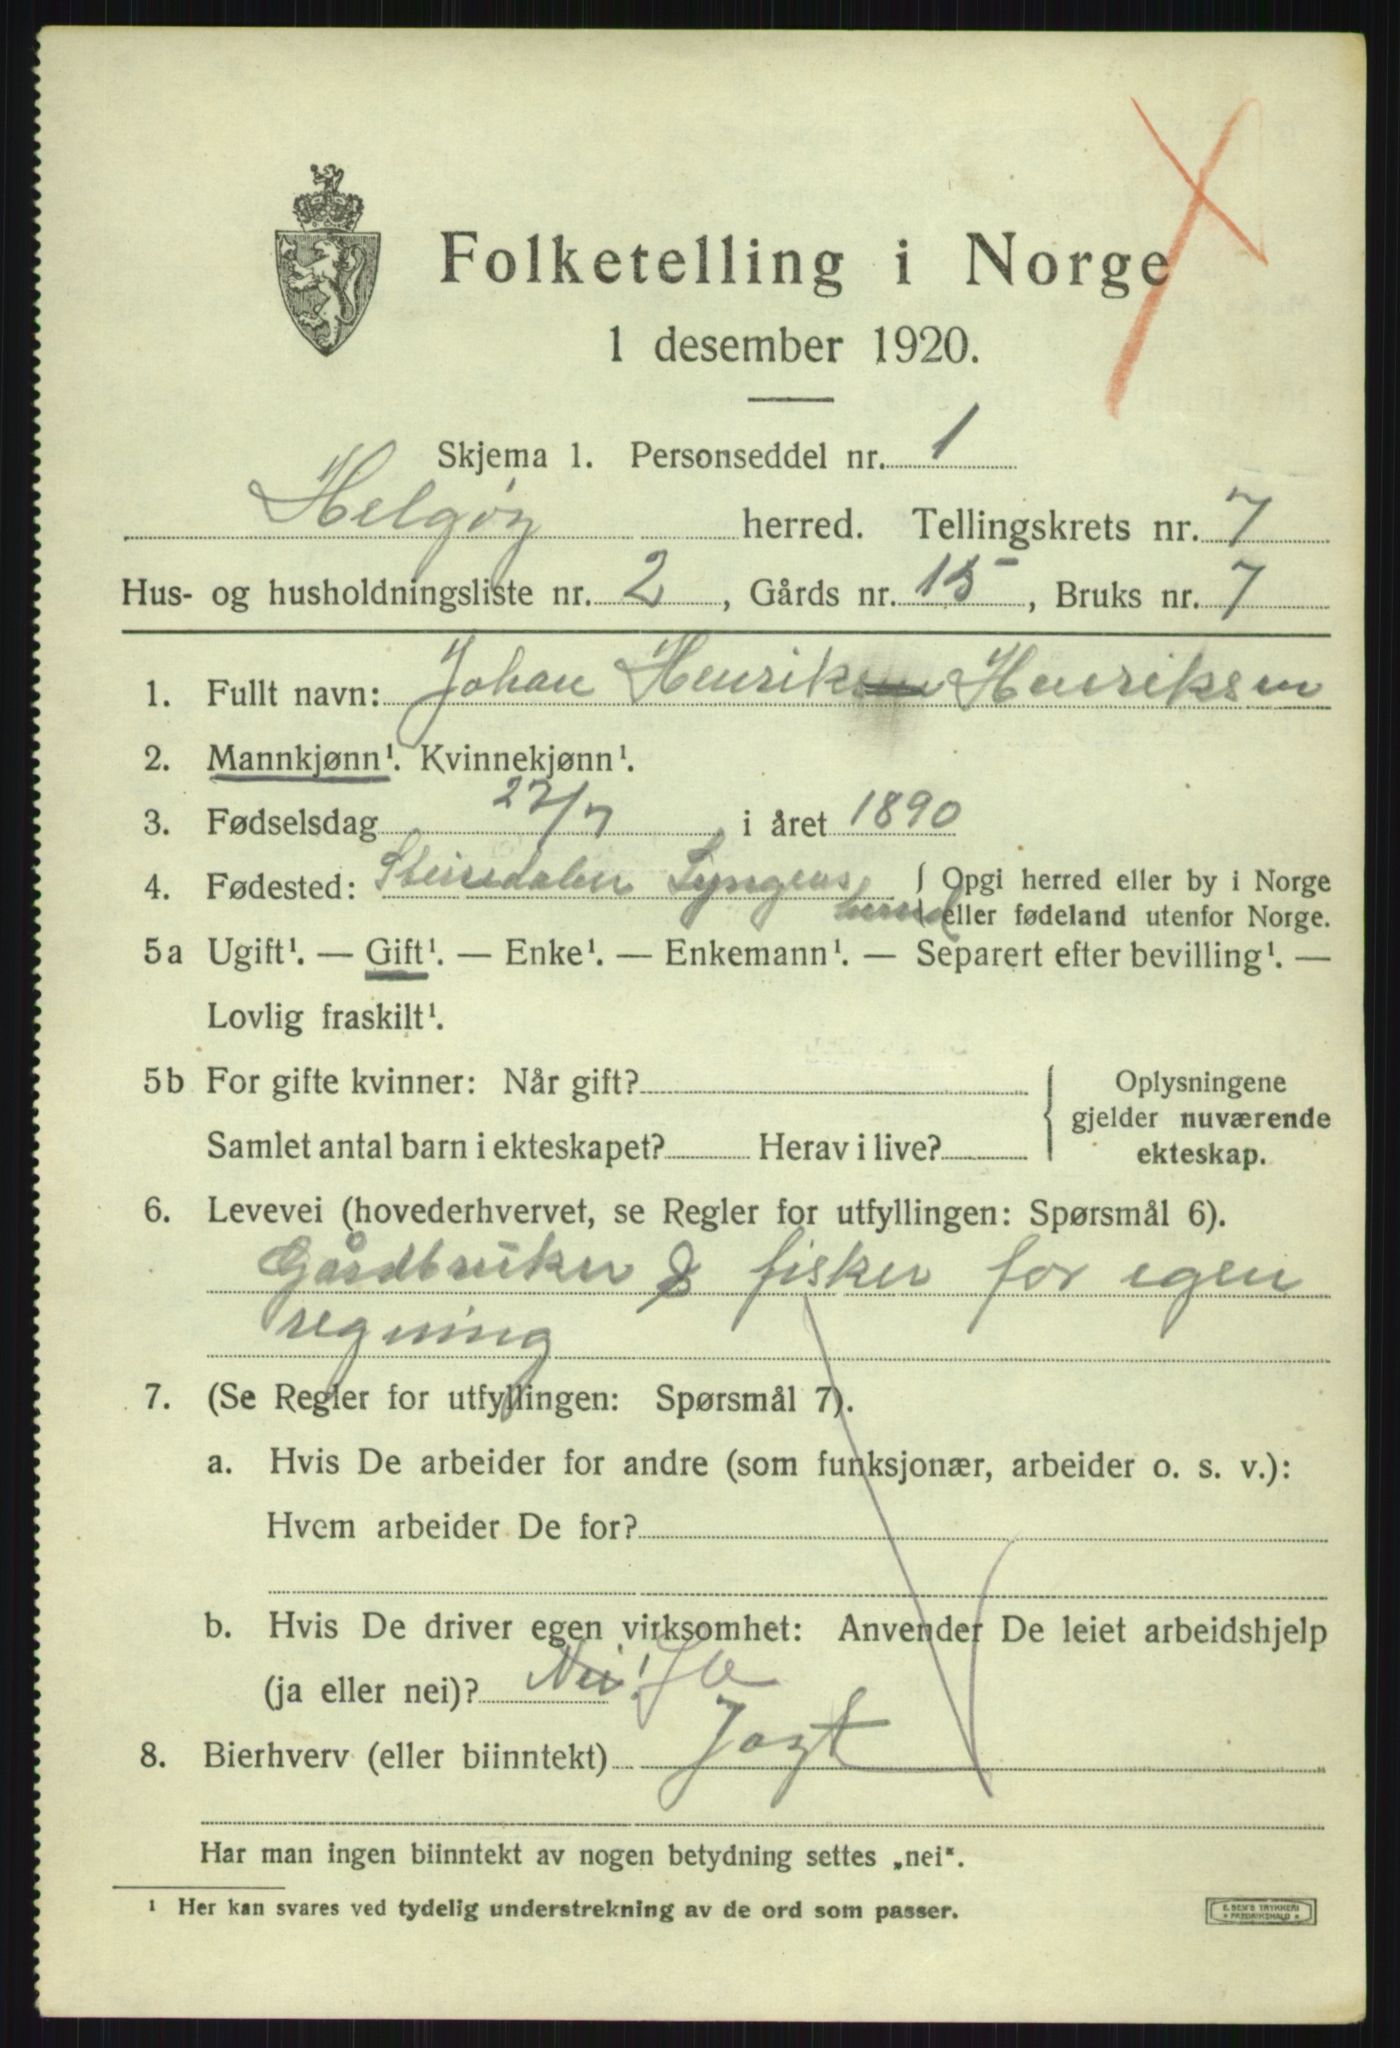 Folketelling i Norge
1 desember 1920.
Skjema 1. Personseddel nr. 1
Helgøy herred. Tellingskrets nr. 7
Hus- og husholdningsliste nr. 2, Gårds nr. 15, Bruks nr. 7
1. Fullt navn: Johan Henriksen Henriksen
2. Mannkjønn¹. Kvinnekjønn¹.
3. Fødselsdag 27/7 i året 1890
4. Fødested: Lyngens { Opgi herred eller by i Norge
herred eller fødeland utenfor Norge.
5a Ugift¹. — Gift¹. — Enke¹. — Enkemann¹. — Separert efter bevilling¹. —
Lovlig fraskilt¹.
5b For gifte kvinner: Når gift? { Oplysningene
gjelder nuværende
Samlet antal barn i ekteskapet? Herav i live? ekteskap.
6. Levevei (hovederhvervet, se Regler for utfyllingen: Spørsmål 6).
Gårdbruker & fisker for egen
regning
7. (Se Regler for utfyllingen: Spørsmål 7).
a. Hvis De arbeider for andre (som funksjonær, arbeider o. s. v.):
Hvem arbeider De for?
b. Hvis De driver egen virksomhet: Anvender De leiet arbeidshjelp
(ja eller nei)? Nei! Ja
8. Bierhverv (eller biinntekt) Jagt
Har man ingen biinntekt av nogen betydning settes „nei".
¹ Her kan svares ved tydelig understrekning av de ord som passer.
E. SEM'S TRYKKERI
FREDRIKSHALD